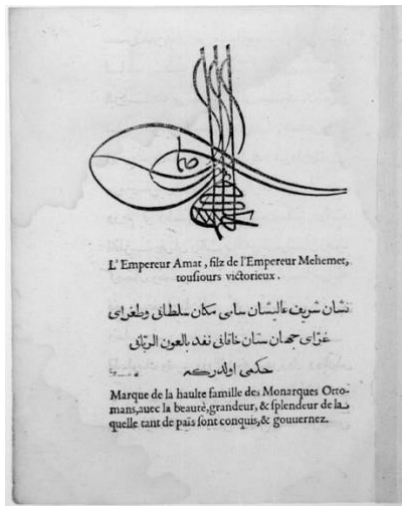 L'Empereur Amat, filz de l'Empereur Mehemet,
touſiours victorieux.
نشان شريف عاليشان سامى مكان سلطانى وطغراى
غرّاى جهان ستان خاقانى نفذ بالعون الربّانى
حكمى اولدركه
Marque de la haulte famille des Monarques Otto-
mans, auec la beauté, grandeur, & ſplendeur de la-
quelle tant de païs ſont conquis, & gouuernez.